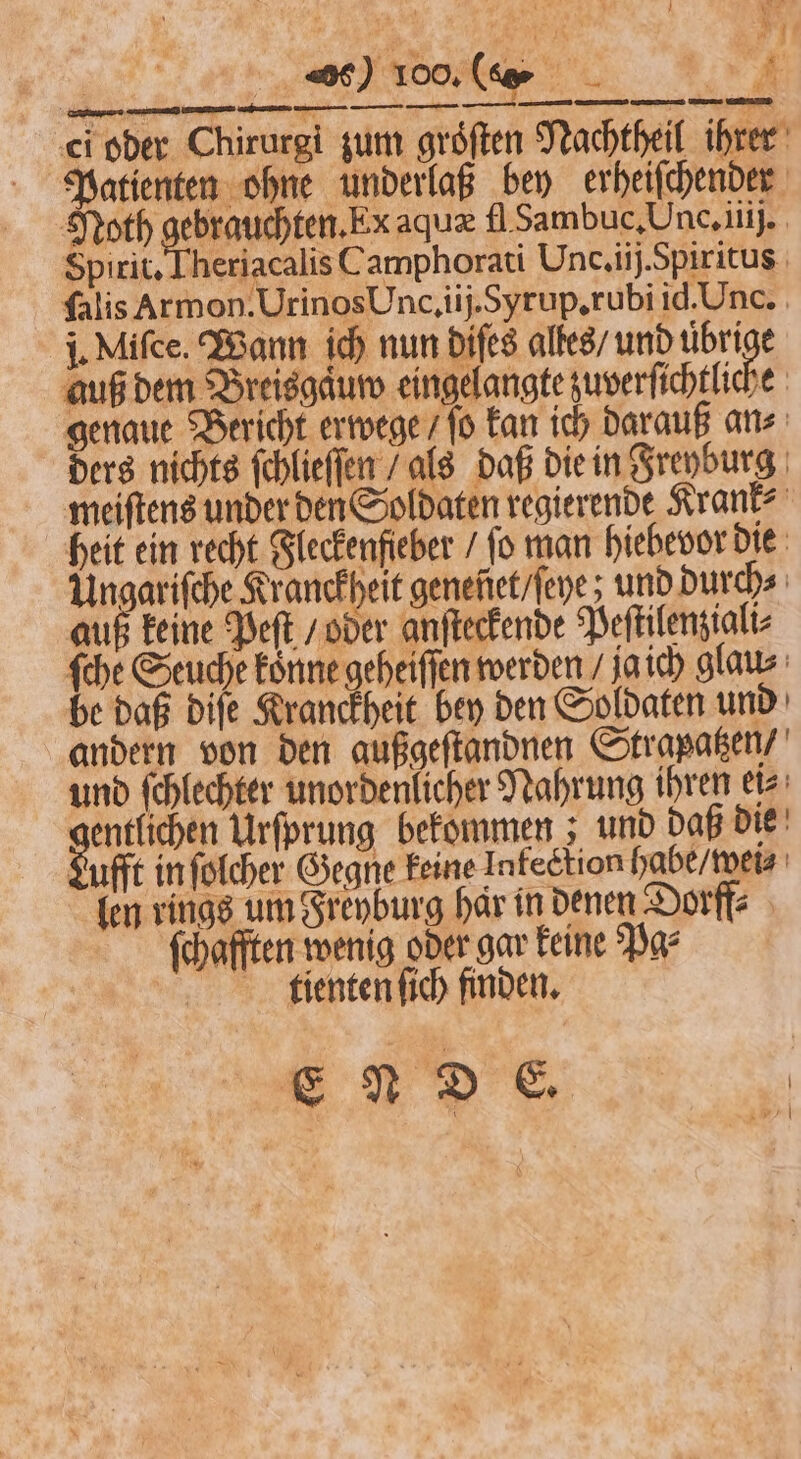 ) 100. (
ci oder Chirurgi zum gröſten Nachtheil ihrer
Patienten ohne underlaß bey erheiſchender
Noth gebrauchten. Ex aquæ fl Sambuc, Unc. iiij.
Spirit. Theriacalis Camphorati Unc. iij. Spiritus
ſalis Armon. Urinos Unc. iij. Syrup. rubi id. Unc.
j. Miſce. Wann ich nun diſes alles / und übrige
auß dem Breisgäuw eingelangte zuverſichtliche
genaue Bericht erwege / ſo kan ich darauß an⸗
ders nichts ſchlieſſen / als daß die in Freyburg
meiſtens under den Soldaten regierende Krank⸗
heit ein recht Fleckenfieber / ſo man hiebevor die
Ungariſche Kranckheit geneñet / ſeye; und durch⸗
auß keine Peſt / oder anſteckende Peſtilenziali⸗
ſche Seuche könne geheiſſen werden / ja ich glau⸗
be daß diſe Kranckheit bey den Soldaten und
andern von den außgeſtandnen Strapatzen /
und ſchlechter unordenlicher Nahrung ihren ei⸗
gentlichen Urſprung bekommen ; und daß die
Lufft in ſolcher Gegne keine Infection habe / wei⸗
len rings um Freyburg här in denen Dorff⸗
ſchafften wenig oder gar keine Pa⸗
tienten ſich finden.
E N D E.